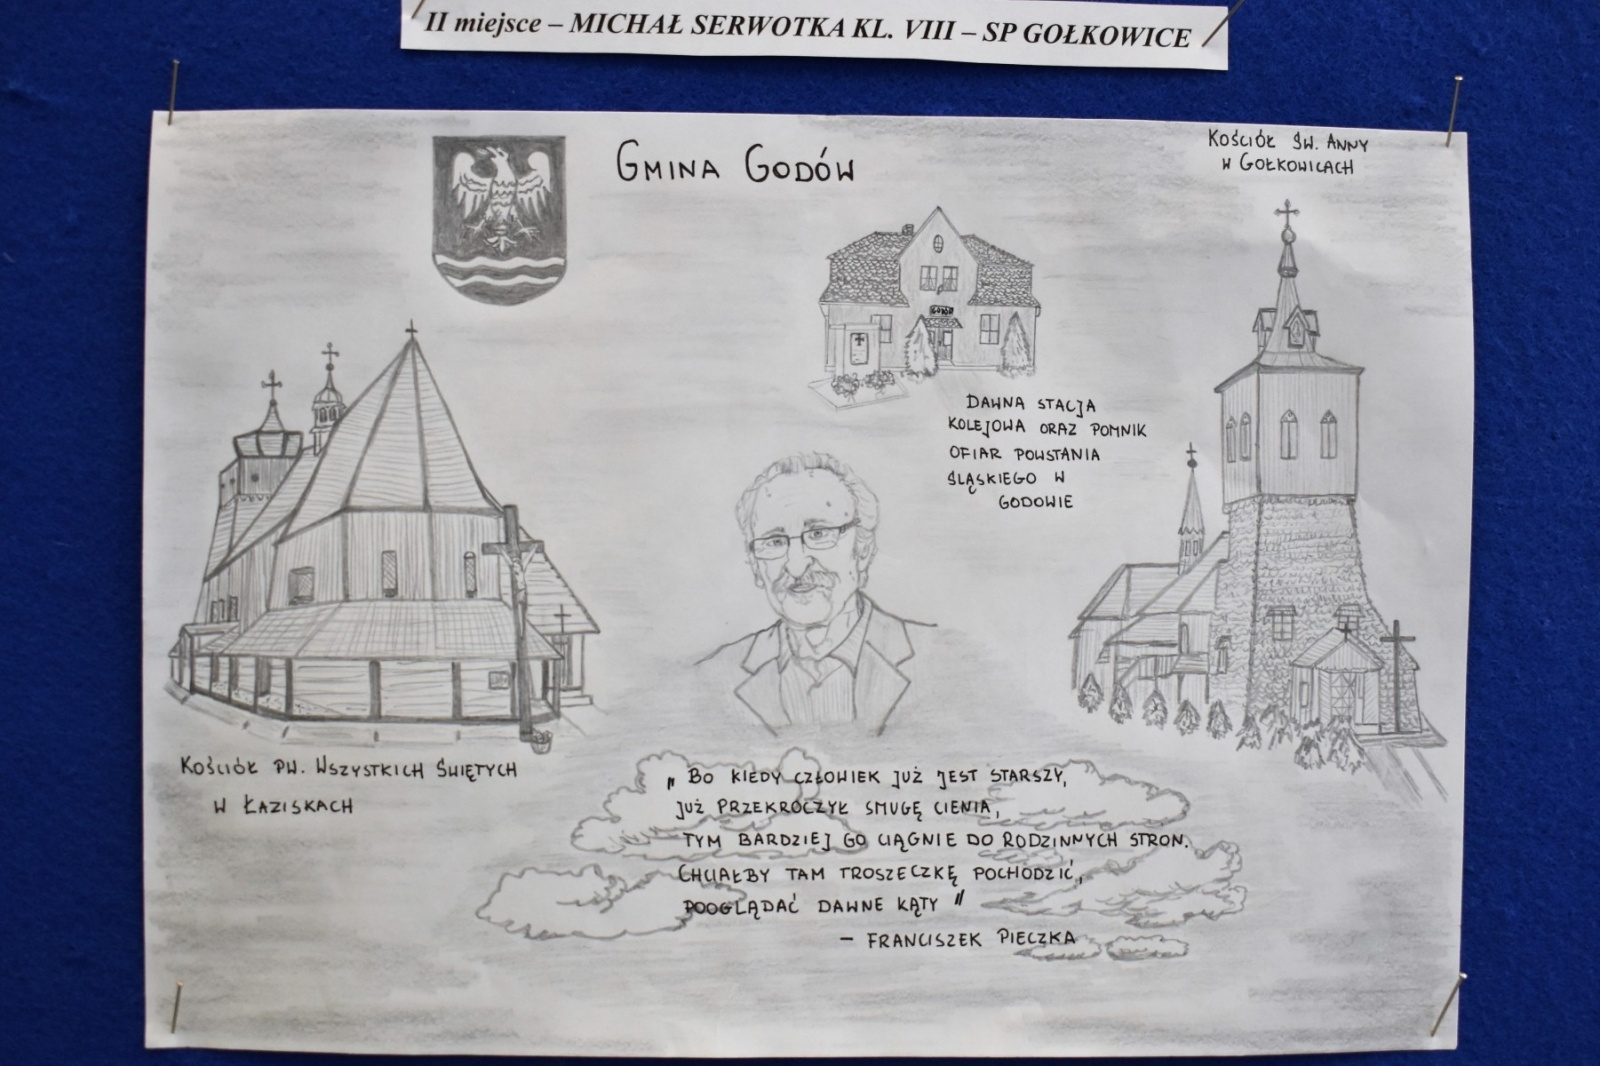 II miejsce – MICHAŁ SERWOTKA KL. VIII – SP GOŁKOWICE
GMINA GODÓW
KOŚCIÓŁ ŚW. ANNY
W GOŁKOWICACH
GODÓW
DAWNA STACJA
KOLEJOWA ORAZ POMNIK
OFIAR POWSTANIA
ŚLĄSKIEGO W
GODOWIE
KOŚCIÓŁ PW. WSZYSTKICH ŚWIĘTYCH
W ŁAZISKACH
„ BO KIEDY CZŁOWIEK JUŻ JEST STARSZY,
JUŻ PRZEKROCZYŁ SMUGĘ CIENIA,
TYM BARDZIEJ GO CIĄGNIE DO RODZINNYCH STRON.
CHCIAŁBY TAM TROSZECZKĘ POCHODZIĆ,
POOGLĄDAĆ DAWNE KĄTY "
– FRANCISZEK PIECZKA